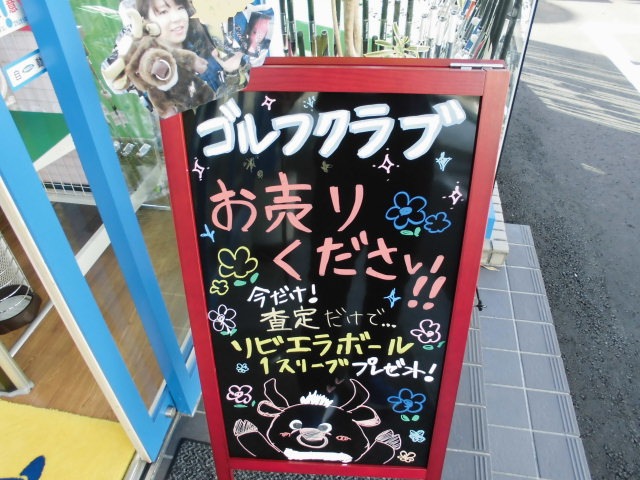 ゴルフクラブ
お売り
ください!!
今だけ!
査定だけで...
リビエラボール
1スリーブプレゼント!